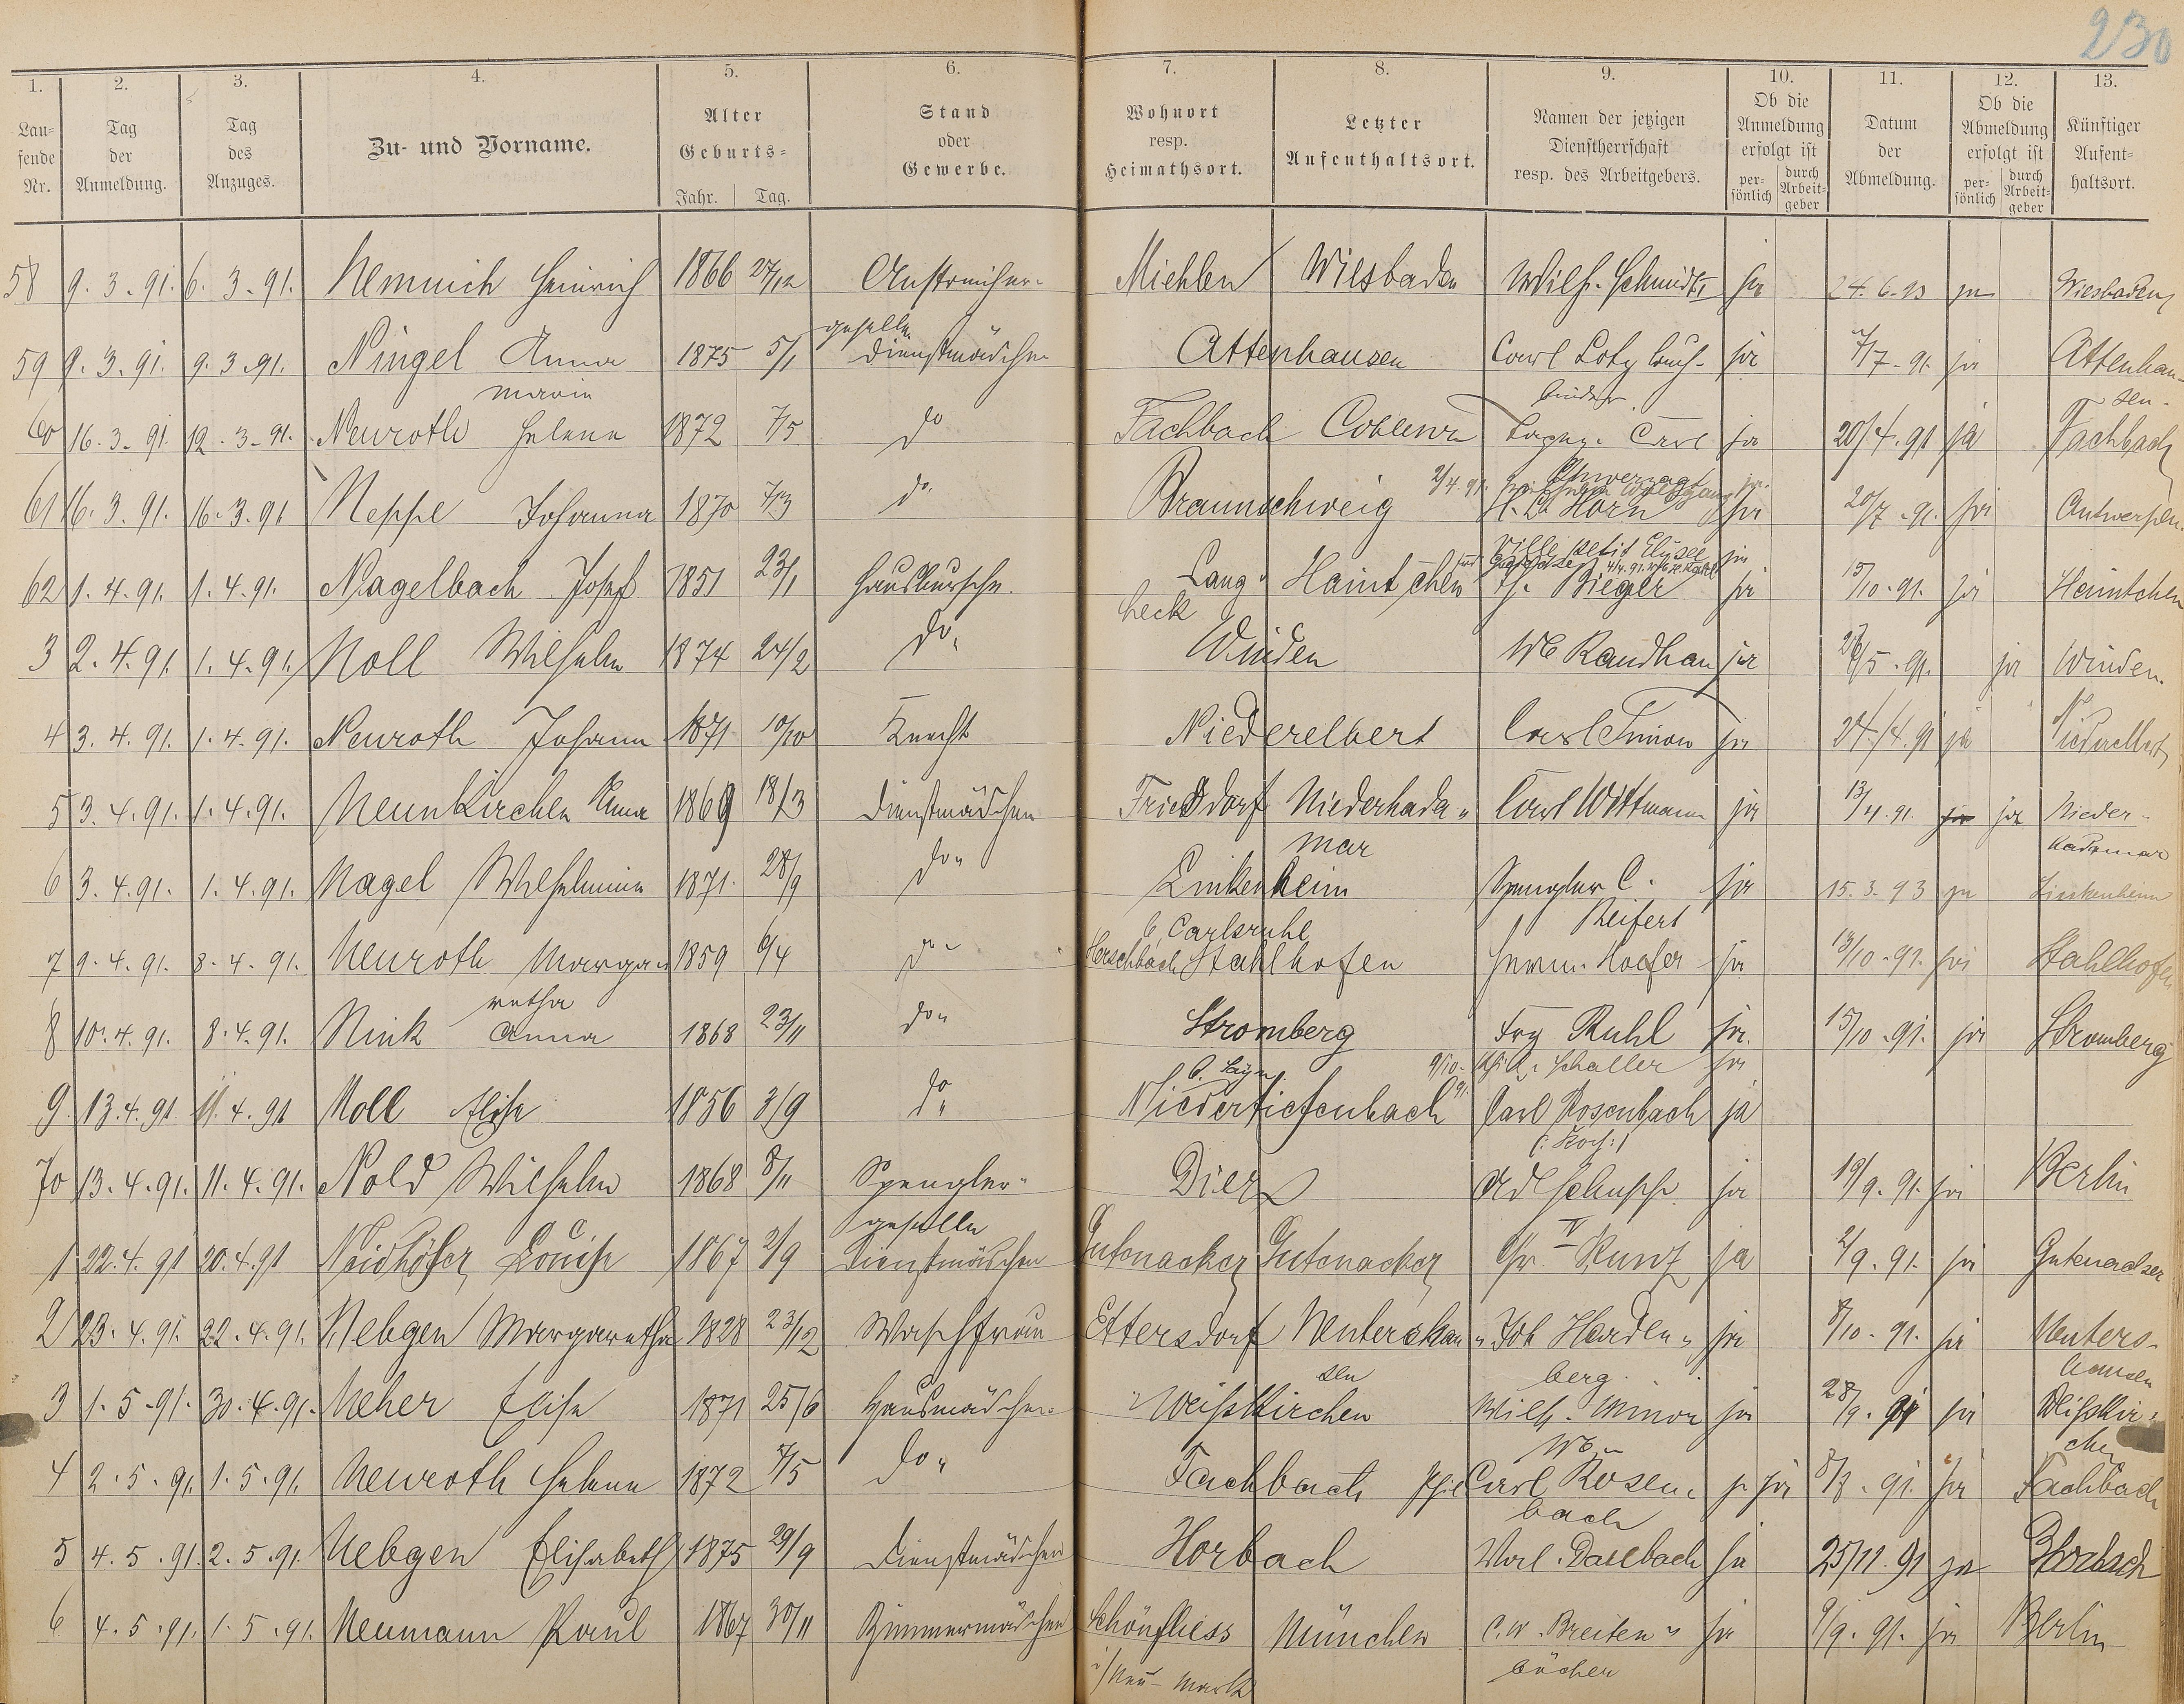 230
1. 2. 3. 4. 5. 6. 7. 8. 9. 10. 11. 12. 13.
Lau-
fende
Nr.
Tag
der
Anmeldung.
Tag
des
Anzuges.
Zu- und Vorname.
Alter
Geburts-
Jahr. Tag.
Stand
oder
Gewerbe.
Wohnort
resp.
Heimathsort.
Letzter
Aufenthaltsort.
Namen der jetzigen
Dienstherrschaft
resp. des Arbeitgebers.
Ob die
Anmeldung
erfolgt ist
per-
sönlich
durch
Arbeit-
geber
Datum
der
Abmeldung.
Ob die
Abmeldung
erfolgt ist
per-
sönlich
durch
Arbeit-
geber
Künftiger
Aufent-
haltsort.
58 9.3.91. 6.3.91. Nemnich Heinrich 1866 27/12 Anstreicher- Miehlen Wiesbaden Wilh. Schmidt ja 24.6.93 ja Wiesbaden
geselle
59 9.3.91. 9.3.91. Ningel Anna 1875 5/1 Dienstmädchen Attenhausen Carl Lotz Buch- ja 7/7.91. ja Attenhau-
Marie binder sen.
60 16.3.91. 12.3.91. Neuroth Helene 1872 7/5 do Fachbach Coblenz Carl ja 20/4.91 ja Fachbach
Unverzagt
61 16.3.91. 16.3.91 Neppe Johanna 1870 7/3 do. Braunschweig H. L. Horn ja 20/7.91. ja Antwerpen.
Ville petit Elysee ja
62 1.4.91. 1.4.91. Nagelbach Josef 1851 23/1 Hausbursche. Lang- Haintchen Rieger ja 15/10.91. ja Haintchen
heck
3 2.4.91. 1.4.91. Noll Wilhelm 1874 24/2 do. Winden Wb Randhan ja 26/5.91. ja Winden.
4 3.4.91. 1.4.91. Neuroth Johann 1871 10/10 Knecht Niederelbert Carl Simon ja 24/4.91 ja Niederelbert
5 3.4.91. 1.4.91. Neunkirchen Anna 1869 18/3 Dienstmädchen Fricdorf Niederhada- Carl Wittmann ja 13/4.91. ja ja Nieder-
mar hadamar
6 3.4.91. 1.4.91. Nagel Wilhelmine 1871. 28/9 do. Linkenheim Spengler C. ja 15.3.93 ja Linkenheim
b Carlsruhe Reifert
7 9.4.91. 8.4.91. Neuroth Marga- 1859 6/4 do Herschbach Stahlhofen Herm. Hoefer ja 13/10.91. ja Stahlhofen
retha
8 10.4.91. 8.4.91. Nink Anna 1868 23/11 do. Stromberg Frz Ruhl ja. 15/10.91. ja Stromberg
b. Sayn Schaller ja
9. 13.4.91. 11.4.91 Noll Elise 1856 3/9 do Niedertiefenbach Carl Rosenbach ja
70 13.4.91. 11.4.91. Nold Wilhelm 1868 8/11 Spengler- Diez Ad Schupp ja 19/9.91. ja Berlin
geselle
1 22.4.91 20.4.91 Neidhöfer Louise 1867 2/9 Dienstmädchen Gutenacker Gutenacker Kunz ja 2/9.91. ja Gutenacker
2 23.4.91. 22.4.91. Nebgen Margaretha 1828 23/12 Waschfrau Ettersdorf Nentershau- Joh Harden- ja 8/10.91. ja Nenters-
sen berg. hausen
3 1.5.91. 30.4.91. Neher Elise 1871 25/6 Hausmädchen Weißkirchen Wilh. Minor ja 28/9.91 ja Weißkir-
Wb. chen
4 2.5.91. 1.5.91. Neuroth Helene 1872 7/5 do. Fachbach Carl Rosen- ja 8/8.91. ja Fachbach
bach
5 4.5.91. 2.5.91. Nebgen Elisabeth 1875 29/9 Dienstmädchen Horbach Dasbach ja 25/11.91 ja Horbach
6 4.5.91. 1.5.91. Neumann Paul 1867 30/11 Zimmermädchen Schönfliess München C. W. Breiten- ja 9/9.91. ja Berlin
i/Neu-Mark bücher